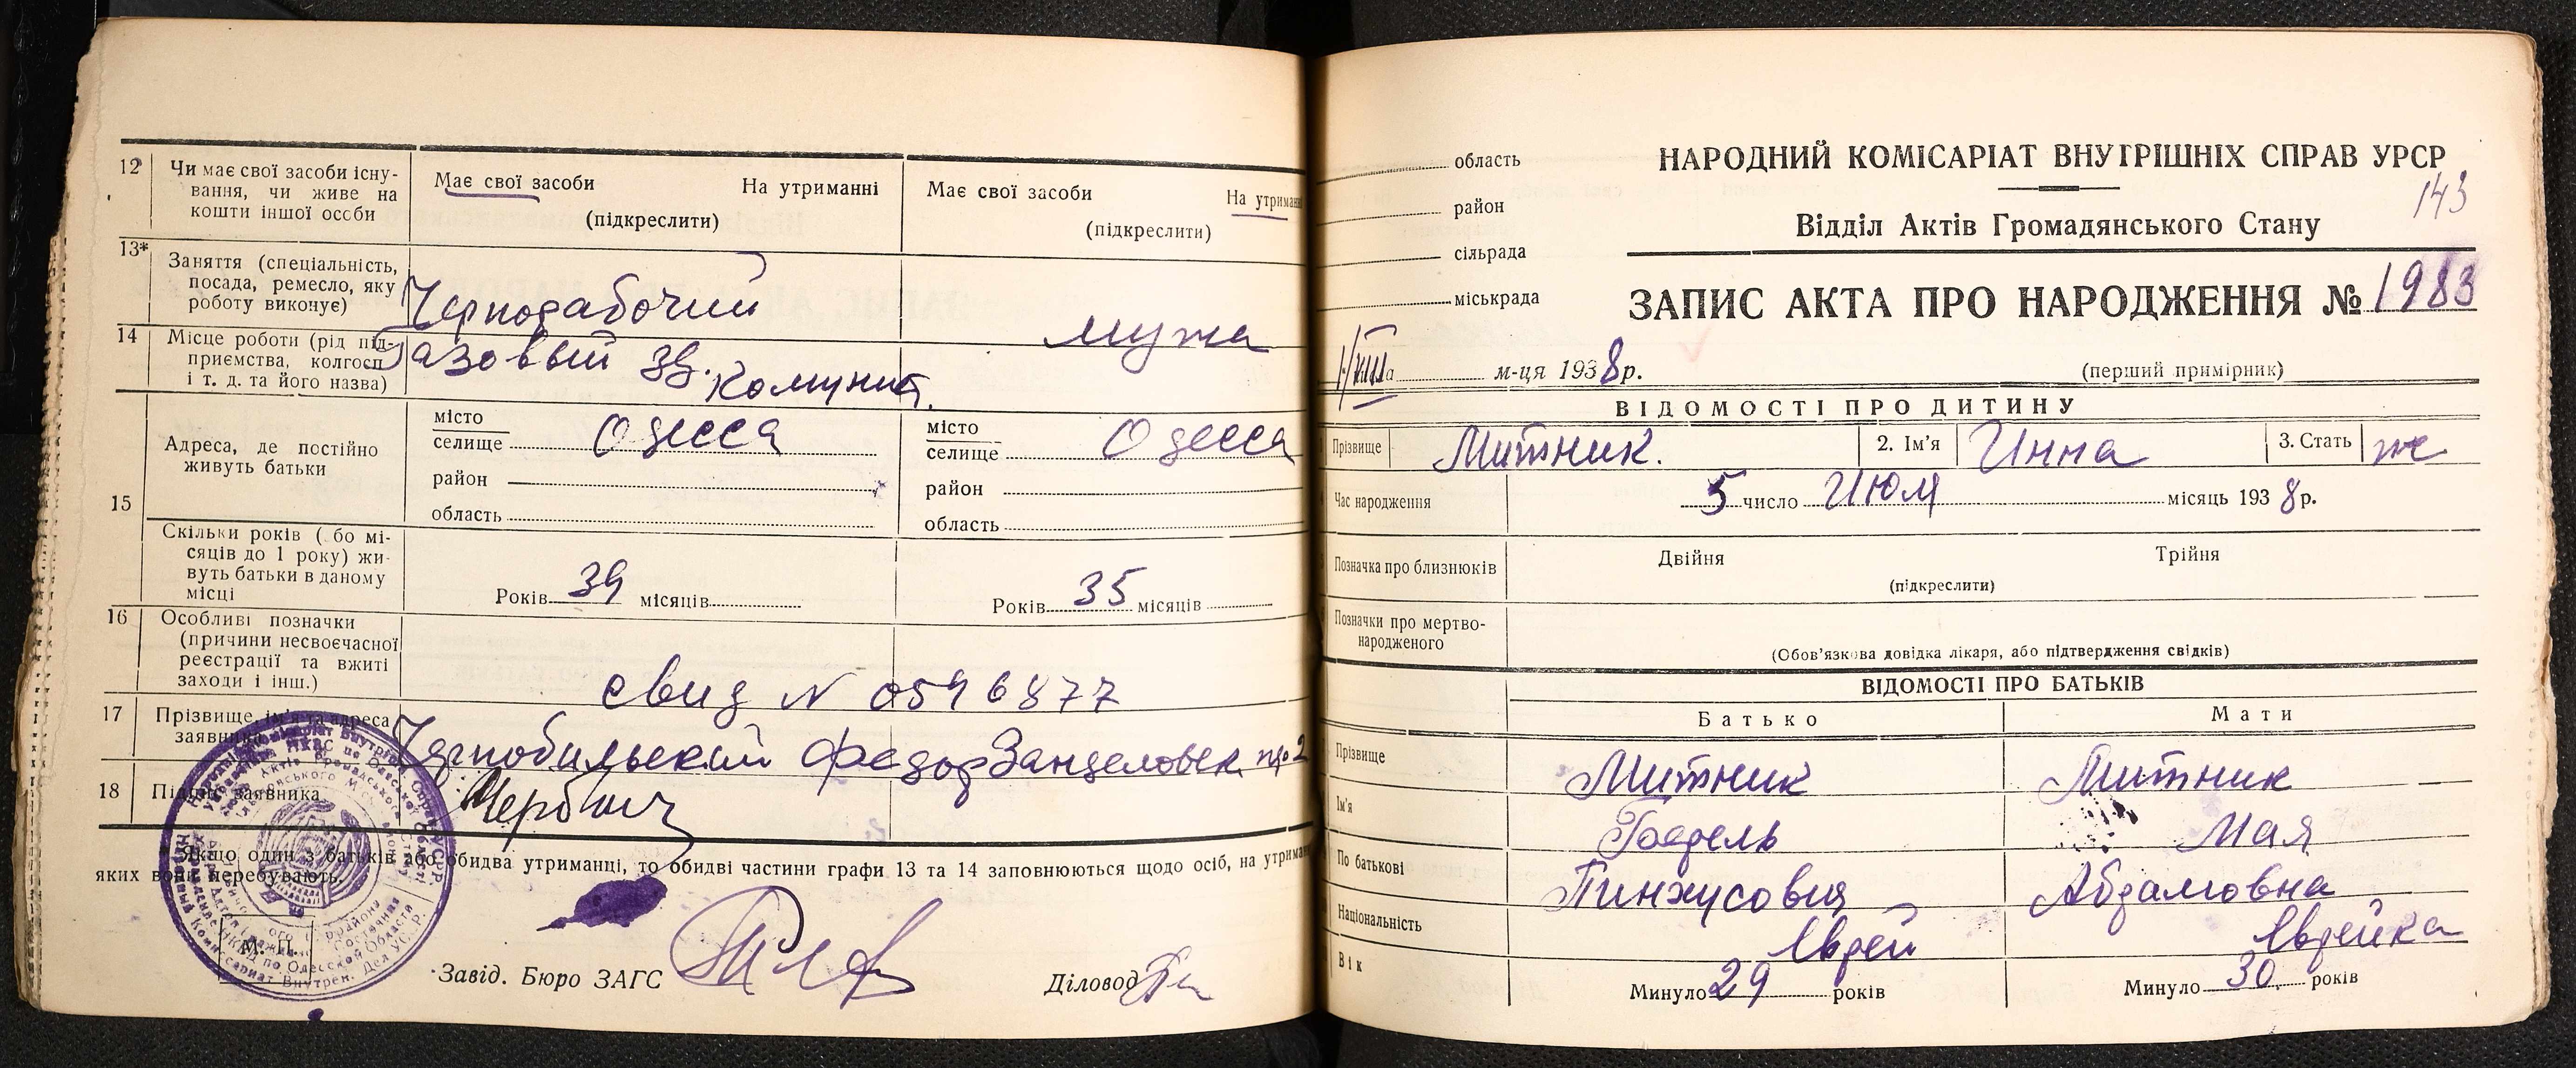 12
Чи має свої засоби існу-
вання, чи живе на
кошти іншої особи
Має свої засоби На утриманні
(підкреслити)
Має свої засоби На утриман
(підкреслити)
13*
Заняття (спеціальність,
посада, ремесло, яку
роботу виконує)
Чернорабочий
мужа
14
Місце роботи (рід під-
приємства, колгосп
і т. д. та його назва)
Газовый зд.
Комунист.
15
Адреса, де постійно
живуть батьки
місто
селище Одесса
район
область
місто
селище Одесса
район
область
Скільки років (або мі-
сяців до 1 року) жи-
вуть батьки в даному
місці
Років 39 місяців
Років 35 місяців
16
Особливі позначки
(причини несвоєчасної
реєстрації та вжиті
заходи і інш.)
свид N 0596877
17
Прізвище, ім'я та адреса
заявника
Чернобильский Федор
18
Підпис заявника
Якщо один з батьків або обидва утриманці, то обидві частини графи 13 та 14 заповнюються щодо осіб, на утриман
яких вони перебувають.
М. П.
Завід. Бюро ЗАГС
Діловод
область
район
сільрада
міськрада
НАРОДНИЙ КОМІСАРІАТ ВНУТРІШНІХ СПРАВ УРСР
143
Відділ Актів Громадянського Стану
ЗАПИС АКТА ПРО НАРОДЖЕННЯ № 1983
1/VIII м-ця 1938 р.
(перший примірник)
ВІДОМОСТІ ПРО ДИТИНУ
Прізвище Митник. 2. Ім'я Инна 3. Стать ж
Час народження 5 число Июля місяць 1938 р.
Позначка про близнюків
Двійня Трійня
(підкреслити)
Позначки про мертво-
народженого
(Обов'язкова довідка лікаря, або підтвердження свідків)
ВІДОМОСТІ ПРО БАТЬКІВ
Батько Мати
Прізвище Митник Митник
Ім'я Гоерель Мая
По батькові Пинхусович Абрамовна
Національність Еврей Еврейка
Вік Минуло 29 років Минуло 30 років